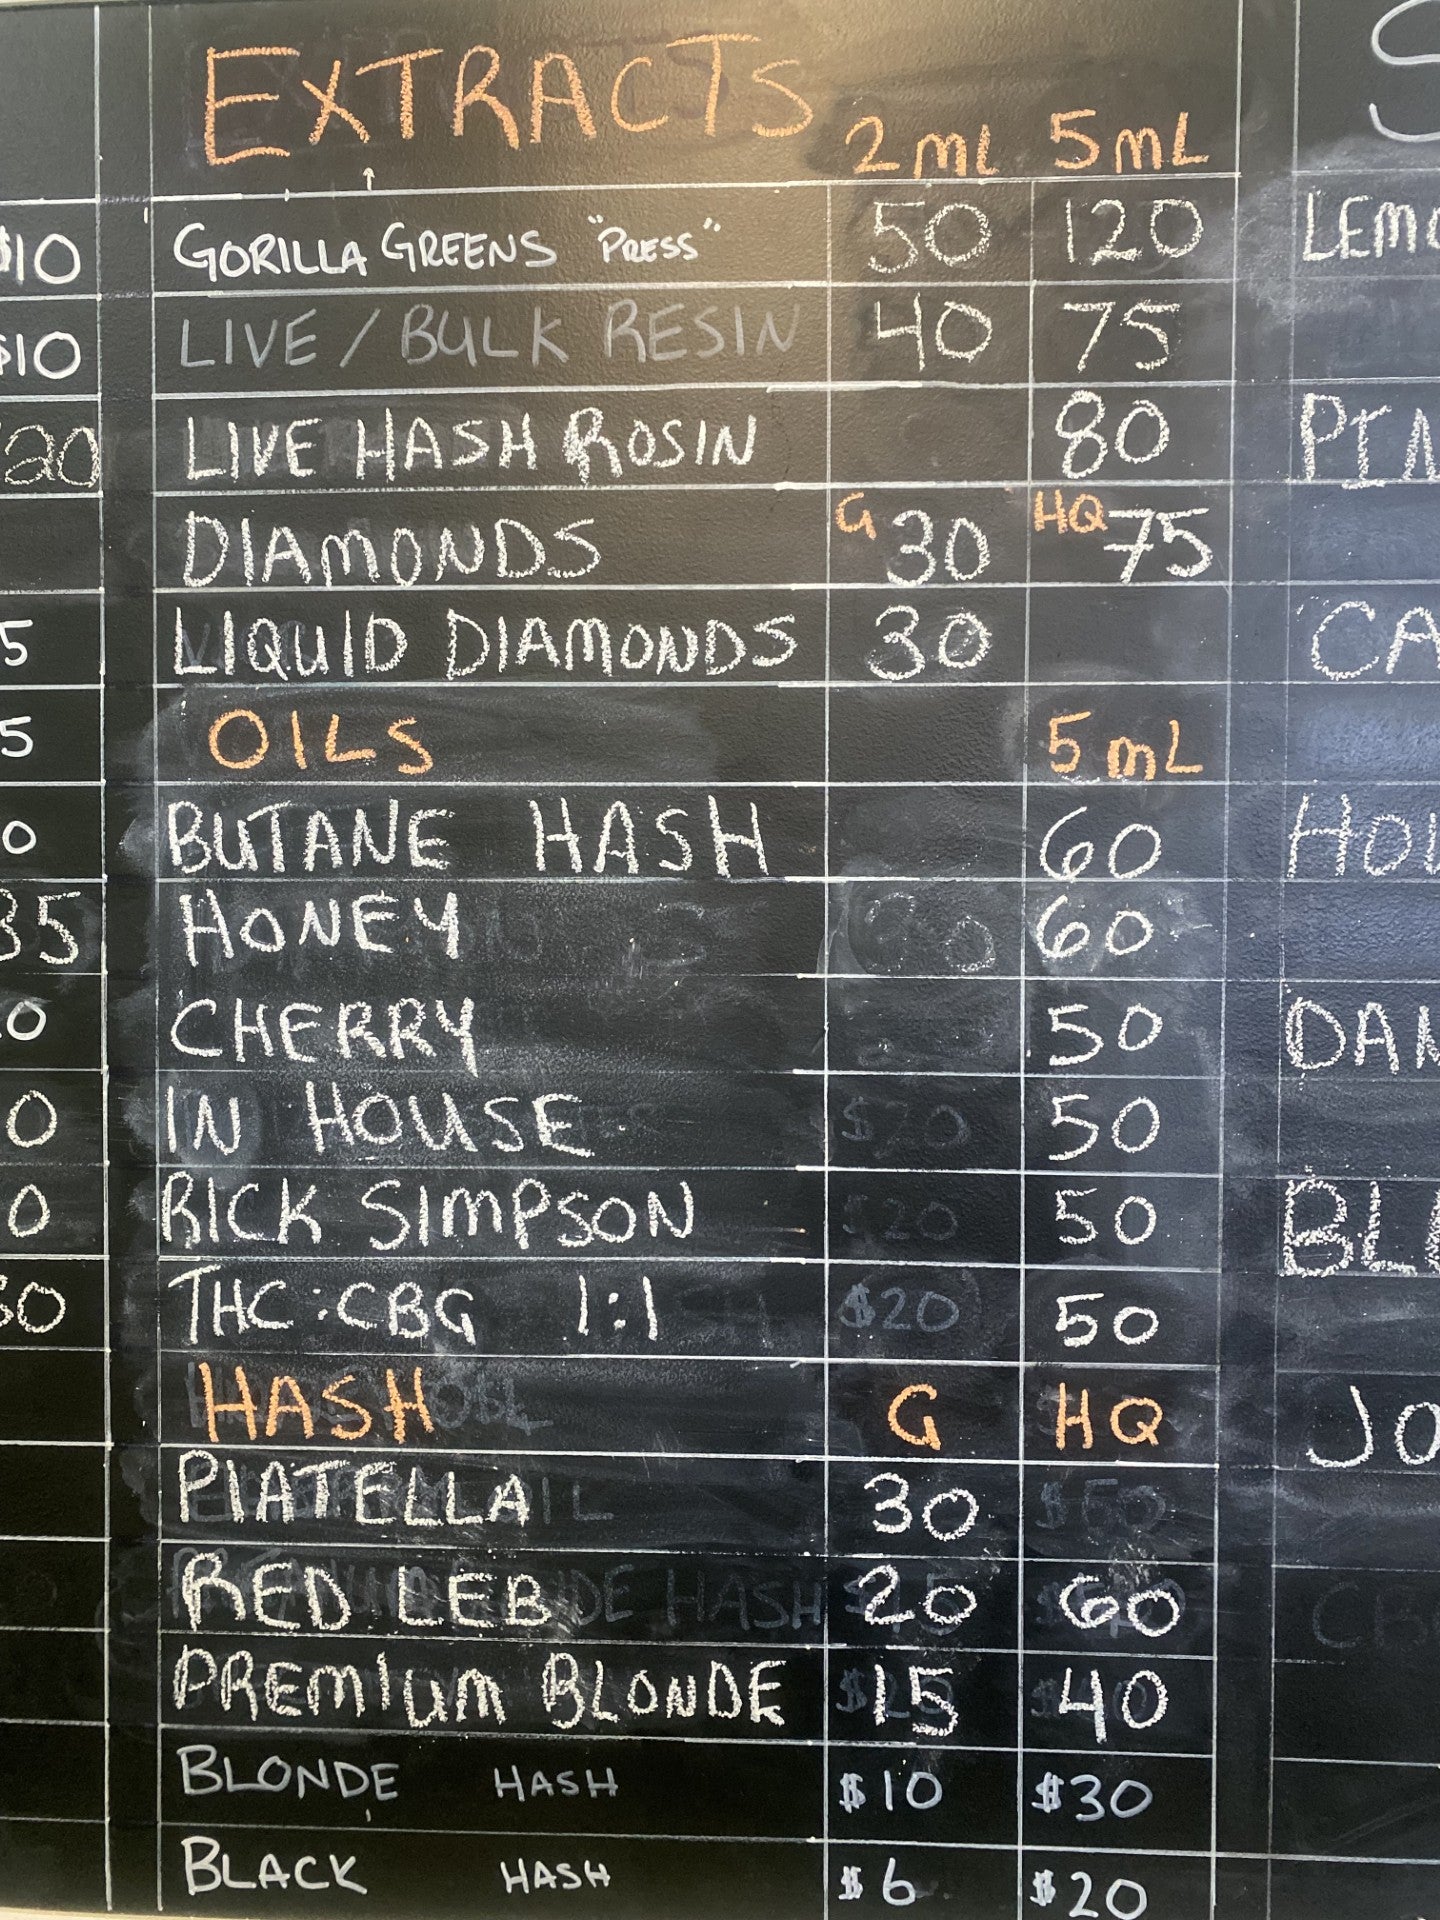 EXTRACTS 2mL 5mL
GORILLA GREENS "PRESS" 50 120
LIVE / BULK RESIN 40 75
LIVE HASH ROSIN 80
DIAMONDS G 30 HQ 75
LIQUID DIAMONDS 30
OILS 5mL
BUTANE HASH 60
HONEY 60
CHERRY 50
IN HOUSE 50
RICK SIMPSON 50
THC:CBG 1:1 $20 50
HASH G HQ
PIATELLA 30
RED LEB 20 60
PREMIUM BLONDE 15 40
BLONDE HASH $10 $30
BLACK HASH $6 $20
$10
$10